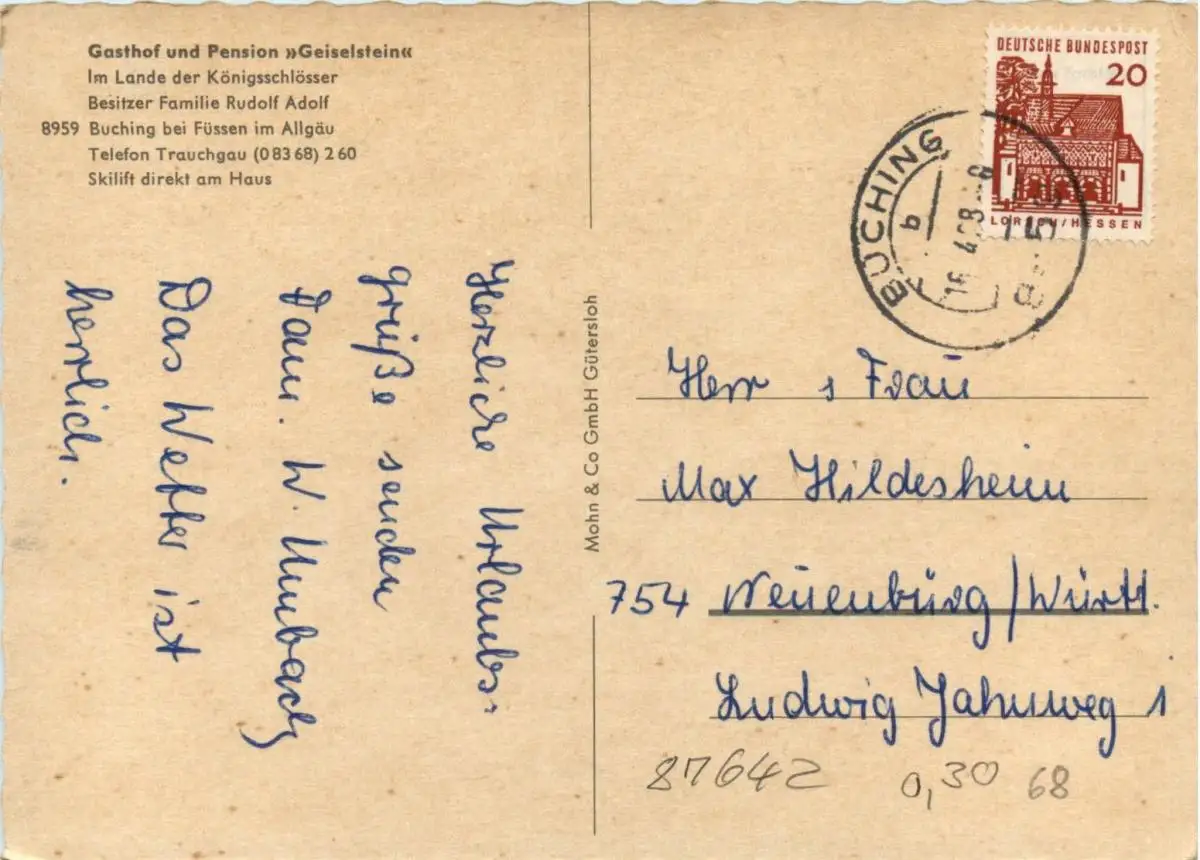 Gasthof und Pension »Geiselstein«
Im Lande der Königsschlösser
Besitzer Familie Rudolf Adolf
8959 Buching bei Füssen im Allgäu
Telefon Trauchgau (0 83 68) 2 60
Skilift direkt am Haus
DEUTSCHE BUNDESPOST
20
LORSCH/HESSEN
BUCHING
b
Herzliche Urlaubs-
grüße senden
Fam. W. Umbach
Das Wetter ist
herrlich.
Mohn & Co GmbH Gütersloh
Herr u Frau
Max Hildesheim
754 Neuenbürg/Württ.
Ludwig Jahnweg 1
87642
0,30 68